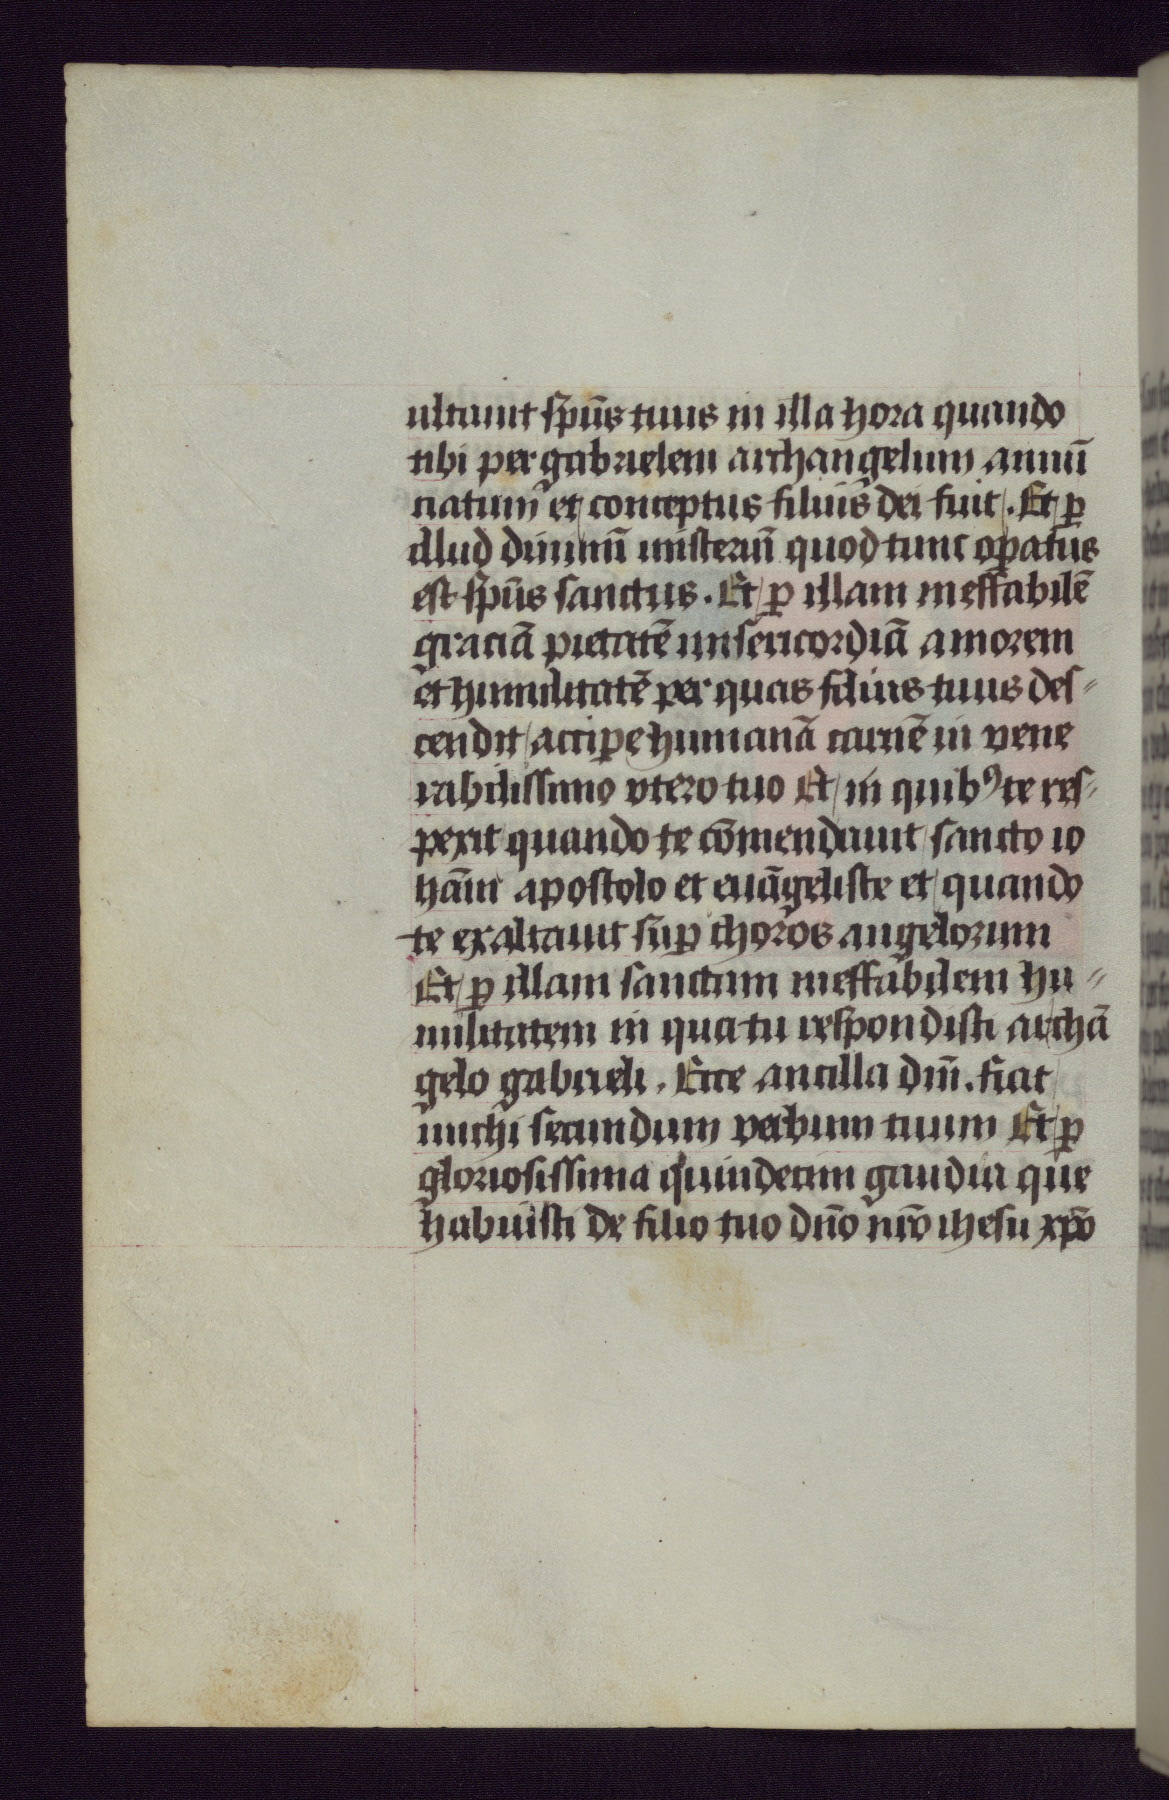 ultauit sp̄us tuus in illa hora quando
tibi per gabrielem archangelum annū
ciatum et conceptus filius dei fuit. Et ꝑ
illud diuinū misteriū quod tunc oꝑatus
est sp̄us sanctus. Et ꝑ illam ineffabilē
graciā pietatē misericordiā amorem
et humilitatē per quas filius tuus des⸗
cendit acciꝑe humanā carnē in vene
rabilissimo vtero tuo Et in quibꝰ te res⸗
pexit quando te cōmendauit sancto io
hāni apostolo et euāgeliste et quando
te exaltauit suꝑ choros angelorum
Et ꝑ illam sanctam ineffabilem hu⸗
militatem in qua tu respondisti archā
gelo gabrieli. Ecce ancilla dn̄i. fiat
michi secundum verbum tuum Et ꝑ
gloriosissima quindecim gaudia que
habuisti de filio tuo dn̄o nr̄o ihesu xp̄o